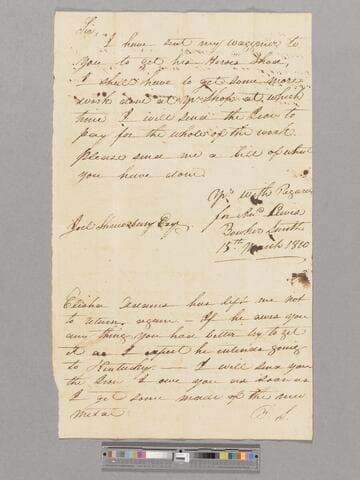 Sir,
I have sent my waggoner to
you to get his Horses Shod.
I shall have to get some more
work done at Yr. Shop at which
time I will send the Iron to
pay for the whole of the work
please send me a bill of what
you have done
Yrs. with Regard
for Lewis
Bowker Smith
15th March 1810
Joel Shrewsbury Esq.
Elisha has left me not
to return again — If he owes you
any thing you had better try to get
it as I expect he intends going
to Kentucky — I will send you
the Iron I owe you as soon as
I get some made of the new
metal